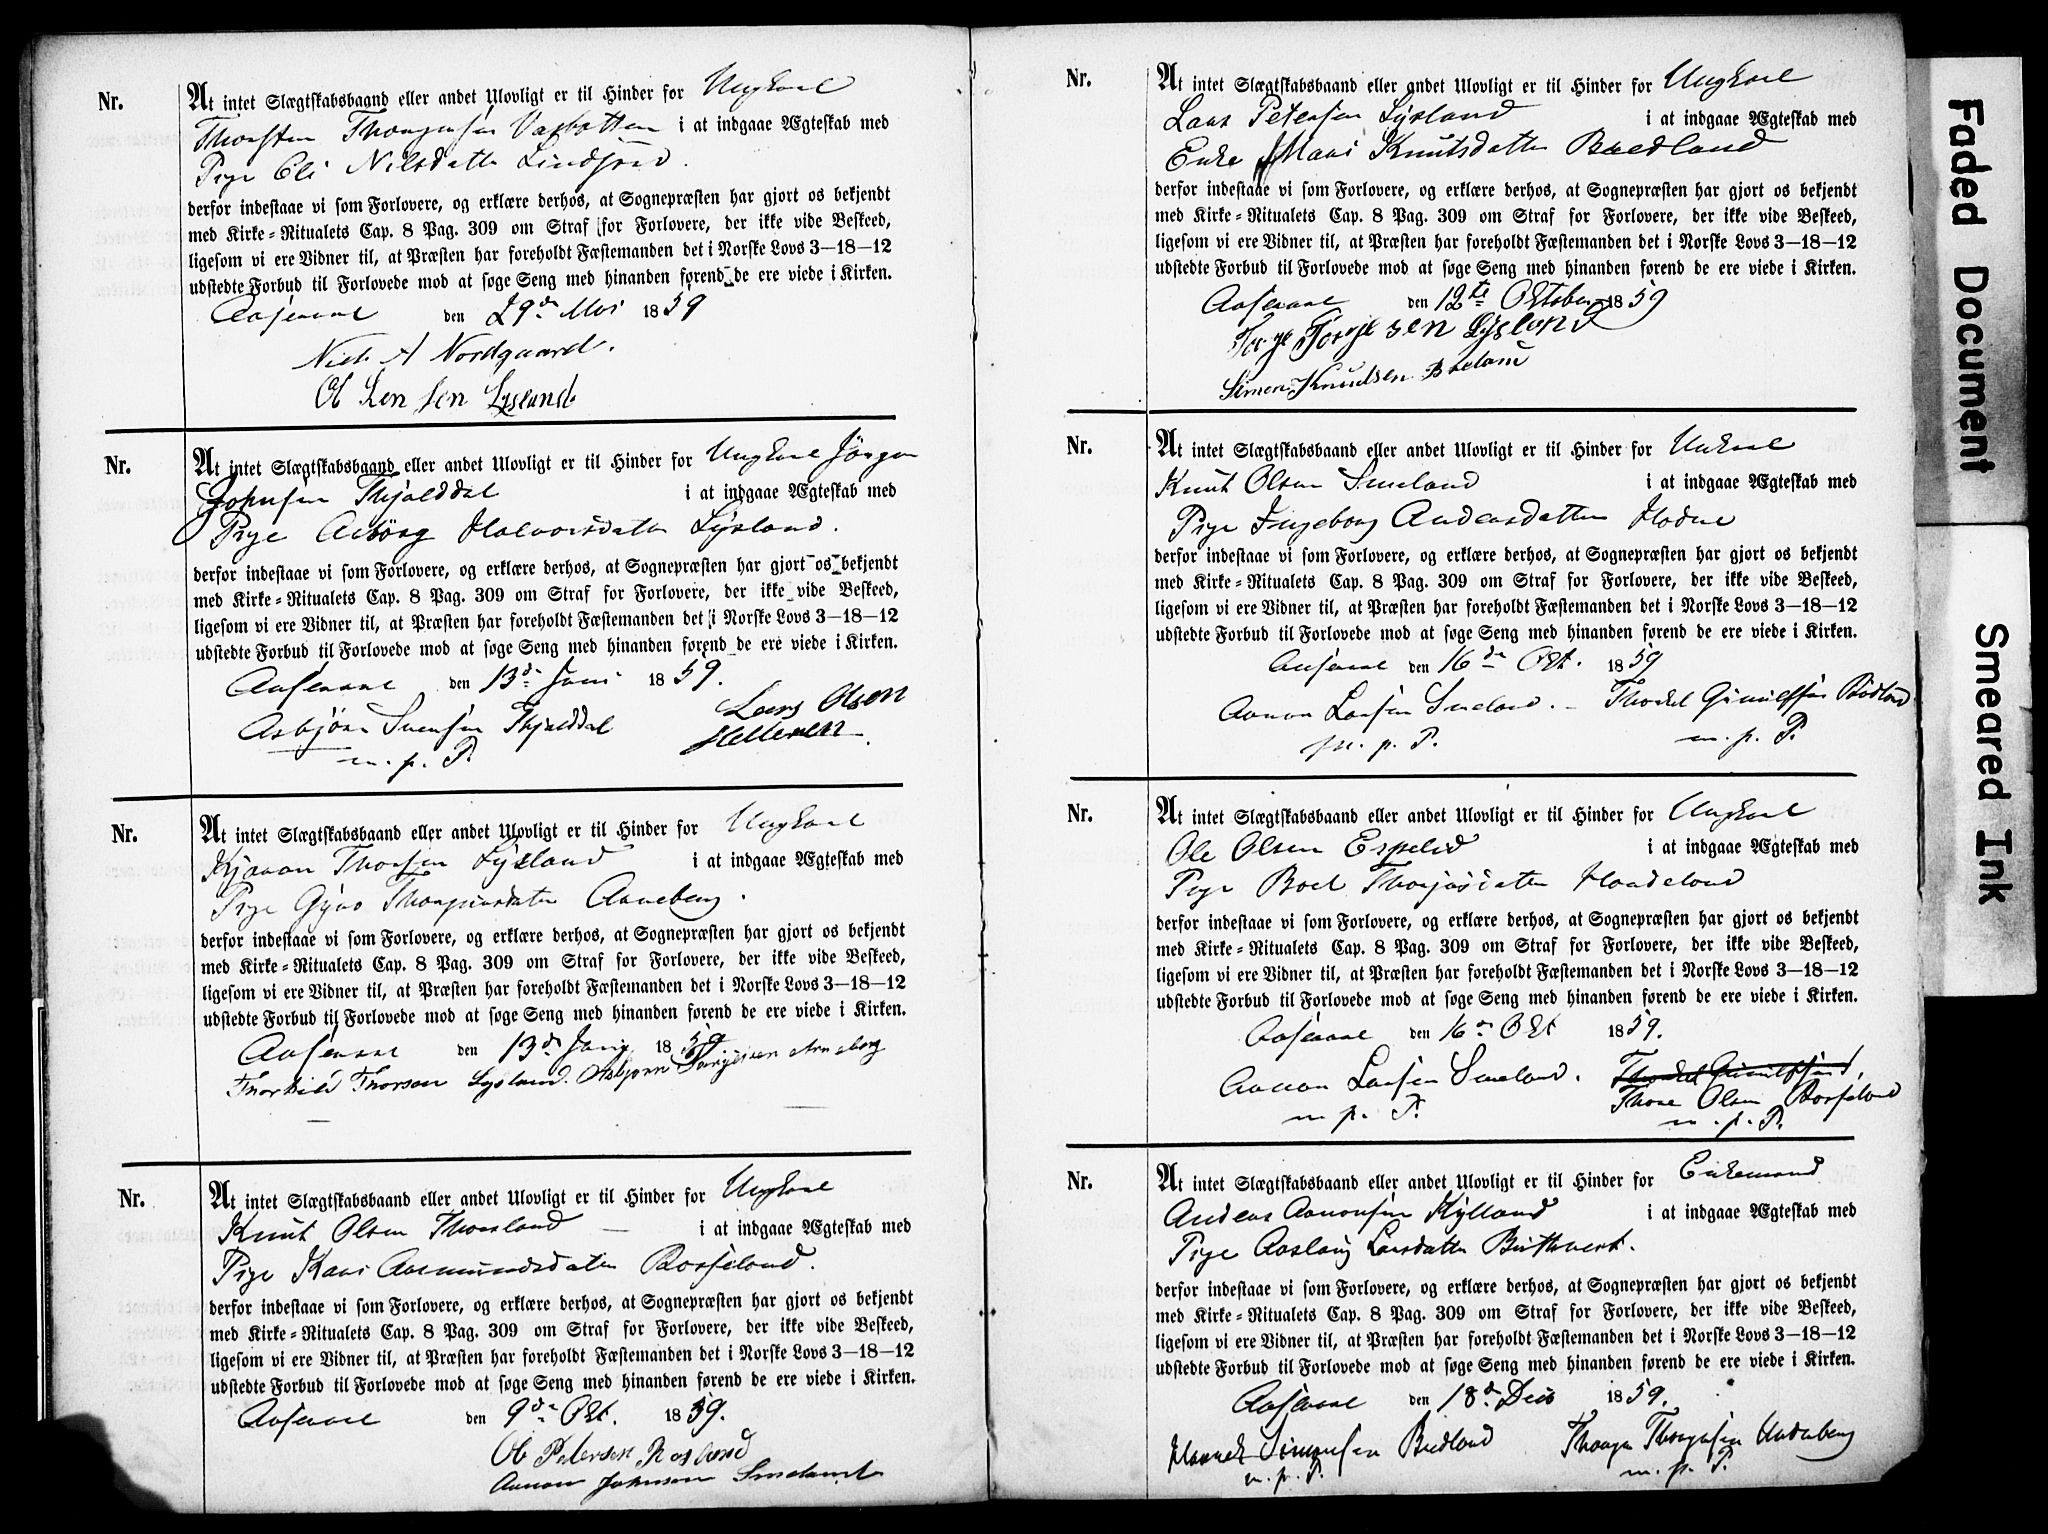 Nr.
At intet Slægtskabsbaand eller andet Ulovligt er til Hinder for Ungkarl
Thorsten i at indgaae Ægteskab med
Pige Eli Nilsdatter
derfor indestaae vi som Forlovere, og erklære derhos, at Sognepræsten har gjort os bekjendt
med Kirke-Ritualets Cap. 8 Pag. 309 om Straf for Forlovere, der ikke vide Beskeed,
ligesom vi ere Vidner til, at Præsten har foreholdt Fæstemanden det i Norske Lovs 3-18-12
udstedte Forbud til Forlovede mod at søge Seng med hinanden førend de ere viede i Kirken.
Aaseraal den 29de Mai 1859
A Nordgaard.
Nr.
At intet Slægtskabsbaand eller andet Ulovligt er til Hinder for Ungkarl Jörgen
Johnsen i at indgaae Ægteskab med
Pige Halvorsdatter Lýsland.
derfor indestaae vi som Forlovere, og erklære derhos, at Sognepræsten har gjort os bekjendt
med Kirke-Ritualets Cap. 8 Pag. 309 om Straf for Forlovere, der ikke vide Beskeed,
ligesom vi ere Vidner til, at Præsten har foreholdt Fæstemanden det i Norske Lovs 3-18-12
udstedte Forbud til Forlovede mod at søge Seng med hinanden førend de ere viede i Kirken.
Aaseraal den 13de Juni 1859.
Asbjörn Svensen Lars Olsen
m. p. P.
Nr.
At intet Slægtskabsbaand eller andet Ulovligt er til Hinder for Ungkarl
Thorsen Lýsland i at indgaae Ægteskab med
Pige
derfor indestaae vi som Forlovere, og erklære derhos, at Sognepræsten har gjort os bekjendt
med Kirke-Ritualets Cap. 8 Pag. 309 om Straf for Forlovere, der ikke vide Beskeed,
ligesom vi ere Vidner til, at Præsten har foreholdt Fæstemanden det i Norske Lovs 3-18-12
udstedte Forbud til Forlovede mod at søge Seng med hinanden førend de ere viede i Kirken.
Aaseraal den 13de Juni 1859
Thorkild Thorsen Lysland. Asbjørn
Nr.
At intet Slægtskabsbaand eller andet Ulovligt er til Hinder for Ungkarl
Knut Olsen Thorsland i at indgaae Ægteskab med
Pige Kari Aasmundsdatter Rosseland.
derfor indestaae vi som Forlovere, og erklære derhos, at Sognepræsten har gjort os bekjendt
med Kirke-Ritualets Cap. 8 Pag. 309 om Straf for Forlovere, der ikke vide Beskeed,
ligesom vi ere Vidner til, at Præsten har foreholdt Fæstemanden det i Norske Lovs 3-18-12
udstedte Forbud til Forlovede mod at søge Seng med hinanden førend de ere viede i Kirken.
Aaseraal den 9de Okt. 1859.
Petersen
Aanon Johnsen Smeland
Nr.
At intet Slægtskabsbaand eller andet Ulovligt er til Hinder for Ungkarl
Lars Petersen Lýsland i at indgaae Ægteskab med
Enke Mari Knutsdatter Bredland
derfor indestaae vi som Forlovere, og erklære derhos, at Sognepræsten har gjort os bekjendt
med Kirke-Ritualets Cap. 8 Pag. 309 om Straf for Forlovere, der ikke vide Beskeed,
ligesom vi ere Vidner til, at Præsten har foreholdt Fæstemanden det i Norske Lovs 3-18-12
udstedte Forbud til Forlovede mod at søge Seng med hinanden førend de ere viede i Kirken.
Aaseraal den 12te Oktober 1859
Lyslend
Simon Knudsen
Nr.
At intet Slægtskabsbaand eller andet Ulovligt er til Hinder for
Knut Olsen Smeland i at indgaae Ægteskab med
Pige Ingeborg Andersdatter
derfor indestaae vi som Forlovere, og erklære derhos, at Sognepræsten har gjort os bekjendt
med Kirke-Ritualets Cap. 8 Pag. 309 om Straf for Forlovere, der ikke vide Beskeed,
ligesom vi ere Vidner til, at Præsten har foreholdt Fæstemanden det i Norske Lovs 3-18-12
udstedte Forbud til Forlovede mod at søge Seng med hinanden førend de ere viede i Kirken.
Aaseraal den 16de Okt. 1859
Aanon Larsen Smeland. -
m. p. P. m. p. P.
Nr.
At intet Slægtskabsbaand eller andet Ulovligt er til Hinder for Ungkarl
Ole Olsen Espelid i at indgaae Ægteskab med
Pige Boel
derfor indestaae vi som Forlovere, og erklære derhos, at Sognepræsten har gjort os bekjendt
med Kirke-Ritualets Cap. 8 Pag. 309 om Straf for Forlovere, der ikke vide Beskeed,
ligesom vi ere Vidner til, at Præsten har foreholdt Fæstemanden det i Norske Lovs 3-18-12
udstedte Forbud til Forlovede mod at søge Seng med hinanden førend de ere viede i Kirken.
Aaseraal den 16de Okt 1859.
Aanon Larsen Smeland.
Thore Olsen Rosseland
m. p. P. m. p. P.
Nr.
At intet Slægtskabsbaand eller andet Ulovligt er til Hinder for Enkemand
Anders Aanonsen Kýlland i at indgaae Ægteskab med
Pige Aaslaug Larsdatter
derfor indestaae vi som Forlovere, og erklære derhos, at Sognepræsten har gjort os bekjendt
med Kirke-Ritualets Cap. 8 Pag. 309 om Straf for Forlovere, der ikke vide Beskeed,
ligesom vi ere Vidner til, at Præsten har foreholdt Fæstemanden det i Norske Lovs 3-18-12
udstedte Forbud til Forlovede mod at søge Seng med hinanden førend de ere viede i Kirken.
Aaseraal den 18de 1859.
Simonsen Bredland
m. p. P. m. p. P.
Faded Document
Smeared Ink